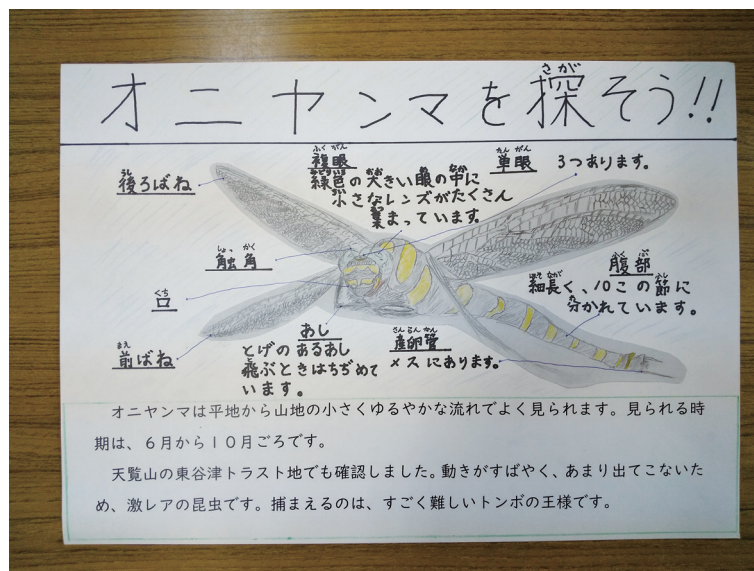 オニヤンマを探そう!!
さが
後ろばね
うし
複眼
ふくがん
緑色の大きい眼の中に
小さなレンズがたくさん
集まっています。
単眼
たんがん
3つあります。
触角
しょっかく
口
くち
前ばね
まえ
あし
とげのあるあし
飛ぶときはちぢめて
います。
産卵管
さんらんかん
メスにあります。
腹部
ふくぶ
細長く、10この節に
分かれています。
オニヤンマは平地から山地の小さくゆるやかな流れでよく見られます。見られる時
期は、6月から10月ごろです。
天覧山の東谷津トラスト地でも確認しました。動きがすばやく、あまり出てこないた
め、激レアの昆虫です。捕まえるのは、すごく難しいトンボの王様です。